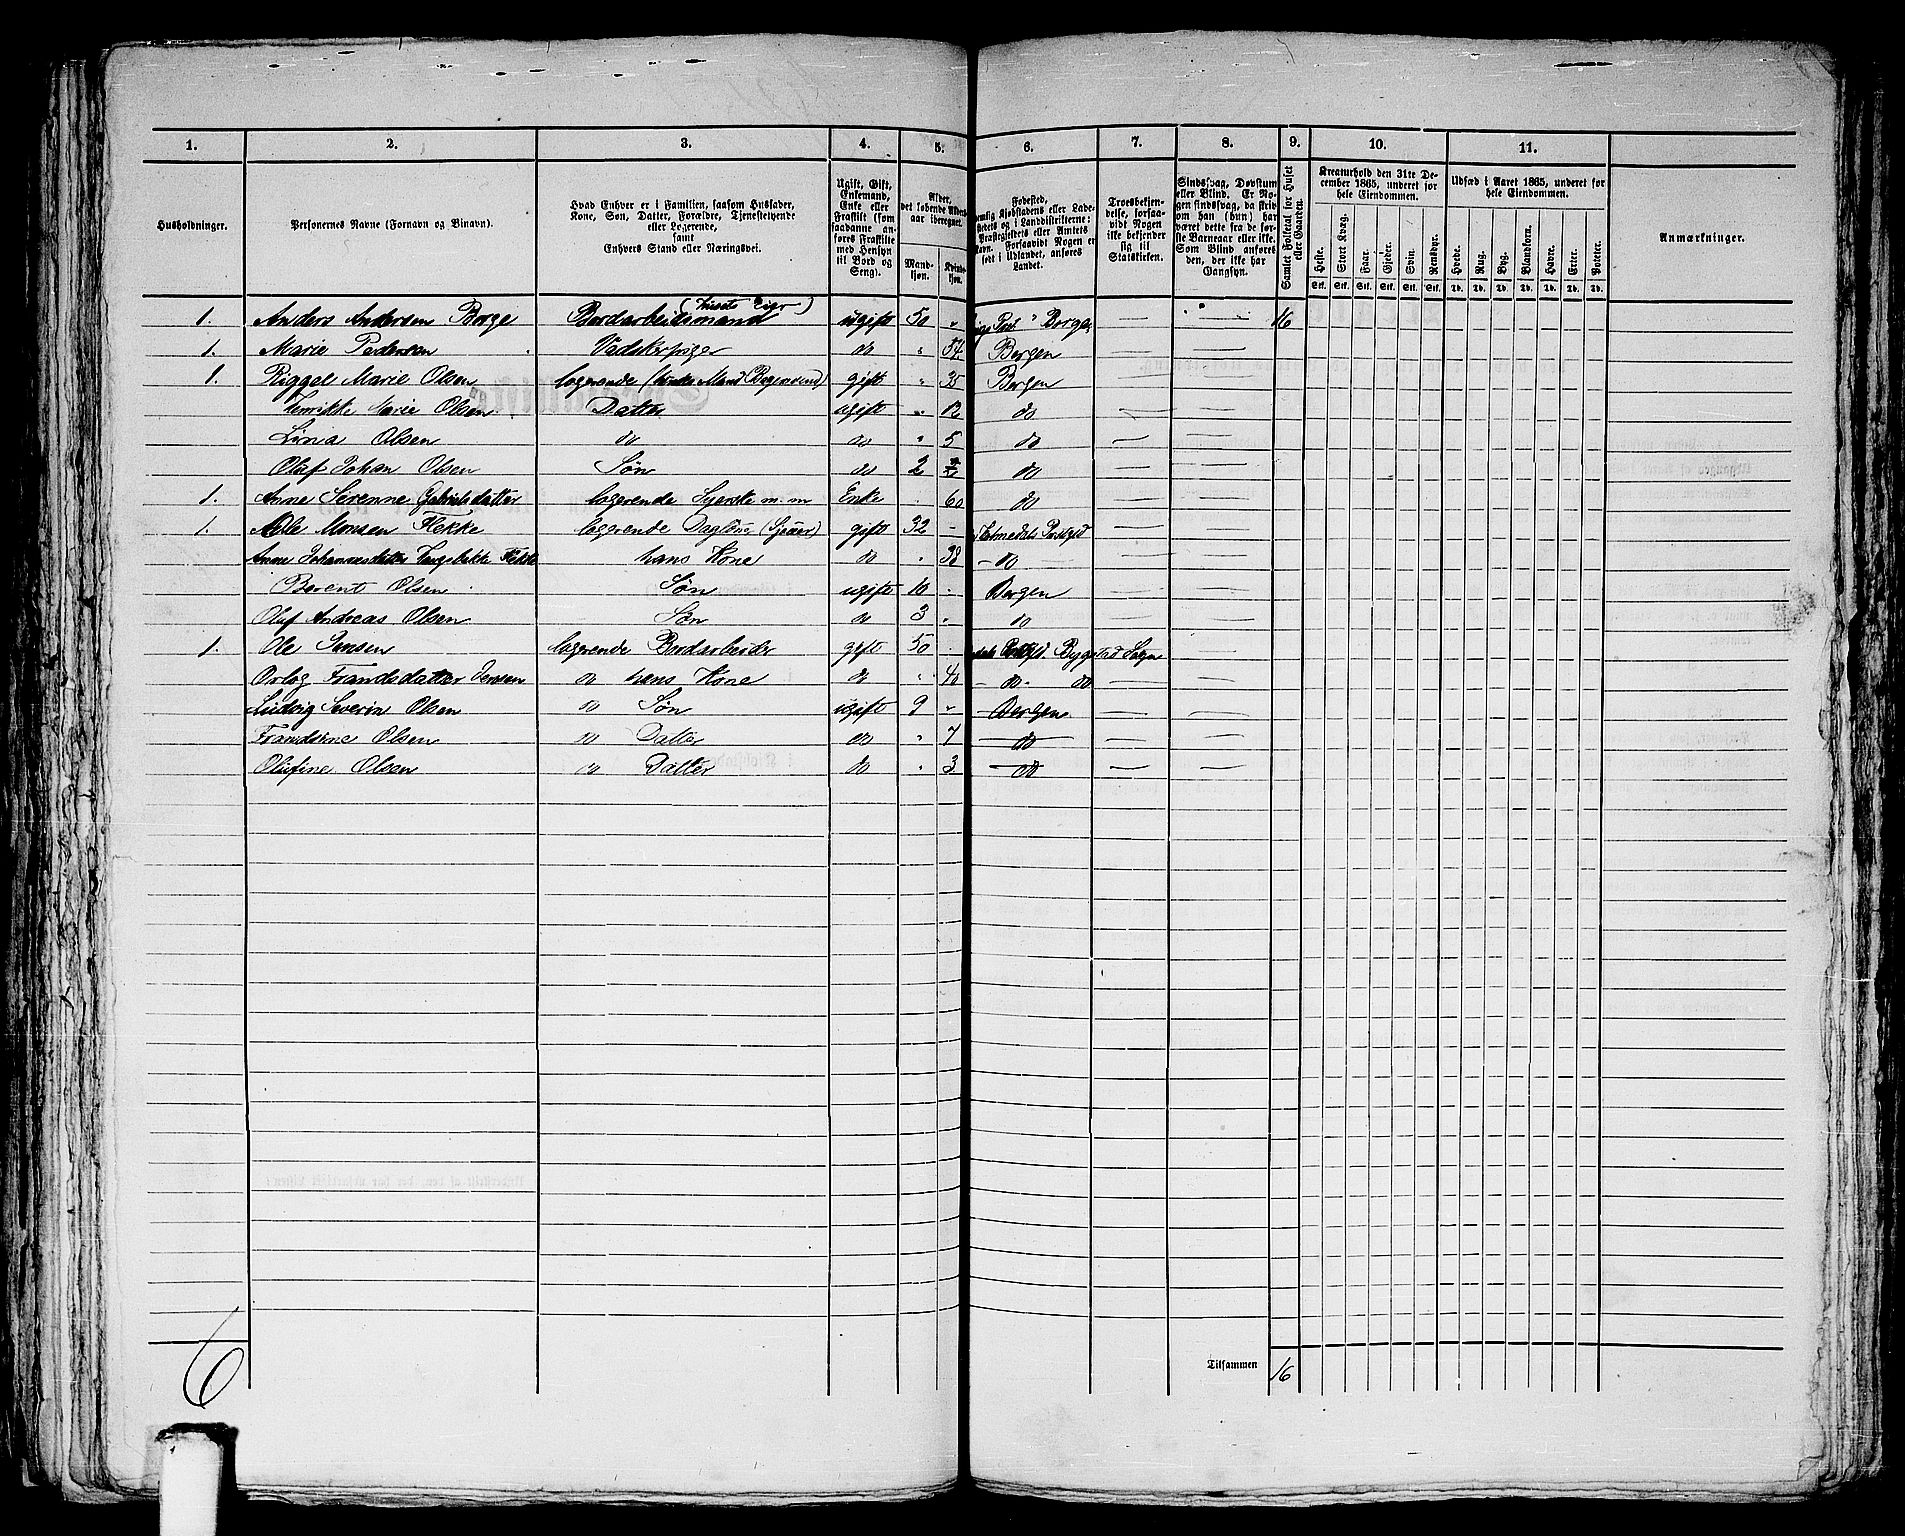 1. 2. 3. 4. 5. 6. 7. 8. 9. 10. 11.
Husholdninger.
Personernes Navne (Fornavn og Binavn).
Hvad Enhver er i Familien, saasom Husfader, Kone, Søn, Datter, Forældre, Tjenestetyende eller Logerende, samt Enhvers Stand eller Næringsvei.
Ugift, Gift, Enkemand, Enke eller Fraskilt (som saadanne anføres Fraskilte med Hensyn til Bord og Seng).
Alder, det løbende Alders aar iberegnet.
Mandkjøn. Kvindekjøn.
Fødested,
Kjøbstadens eller Lade- i Landdistrikterne: Præstegjeldets eller Amtets Forsaavidt Nogen er født i Udlandet, anføres Landet.
Troesbekjendelse, forsaavidt Nogen ikke bekjender sig til Statskirken.
Sindssvag, Døvstum eller Blind. Er Nogen sindssvag, da skrives om han (hun) har været dette fra de første Barneaar eller ikke. Som Blind anføres den, der ikke har Gangsyn.
Samlet Folketal for Huset eller Gaarden.
Kreaturhold den 31te December 1865, underet for hele Eiendommen.
Heste. Stort Kvæg. Faar. Gjeder. Svin. Rensdyr.
Stk. Stk. Stk. Stk. Stk. Stk.
Udsæd i Aaret 1865, underet for hele Eiendommen.
Hvede. Rug. Byg. Blandkorn. Havre. Erter. Poteter.
Td. Td. Td. Td. Td. Td. Td.
Anmærkninger.
1. Anders Andersen Borge Bordarbeidsmand (Husets Eier) ugift 50 " Borge 16
1. Marie Pedersen Vadskerpige do " 54 Bergen
1. Riggel Marie Olsen logerende gift " 35 Bergen
Henrikke Marie Olsen Datter ugift " 12 do
Lina Olsen do do " 5 do
Olaf Johan Olsen Søn do 2 do
1. Anne Serenne Gabrielsdatter logerende Syerske m.m Enke 60 do
1. Ole Monsen Flekke logerende gift 32 - Holmedals Præstgjd
Anne Johannesdatter Flekke hans Kone do " 38 - do
Berent Olsen Søn ugift 10 Bergen
Oluf Andreas Olsen Søn do 3 " do
1. Ole Jensen logerende Bordarbeider gift 50 Bygstad Sogn
Orlog Frandsdatter Jensen do hans Kone do " 40 - do - do
Ludvig Severin Olsen do Søn ugift 9 " Bergen
Frandsine Olsen do Datter do " 7 do
Olufine Olsen do Datter do " 3 do
Tilsammen 16
6